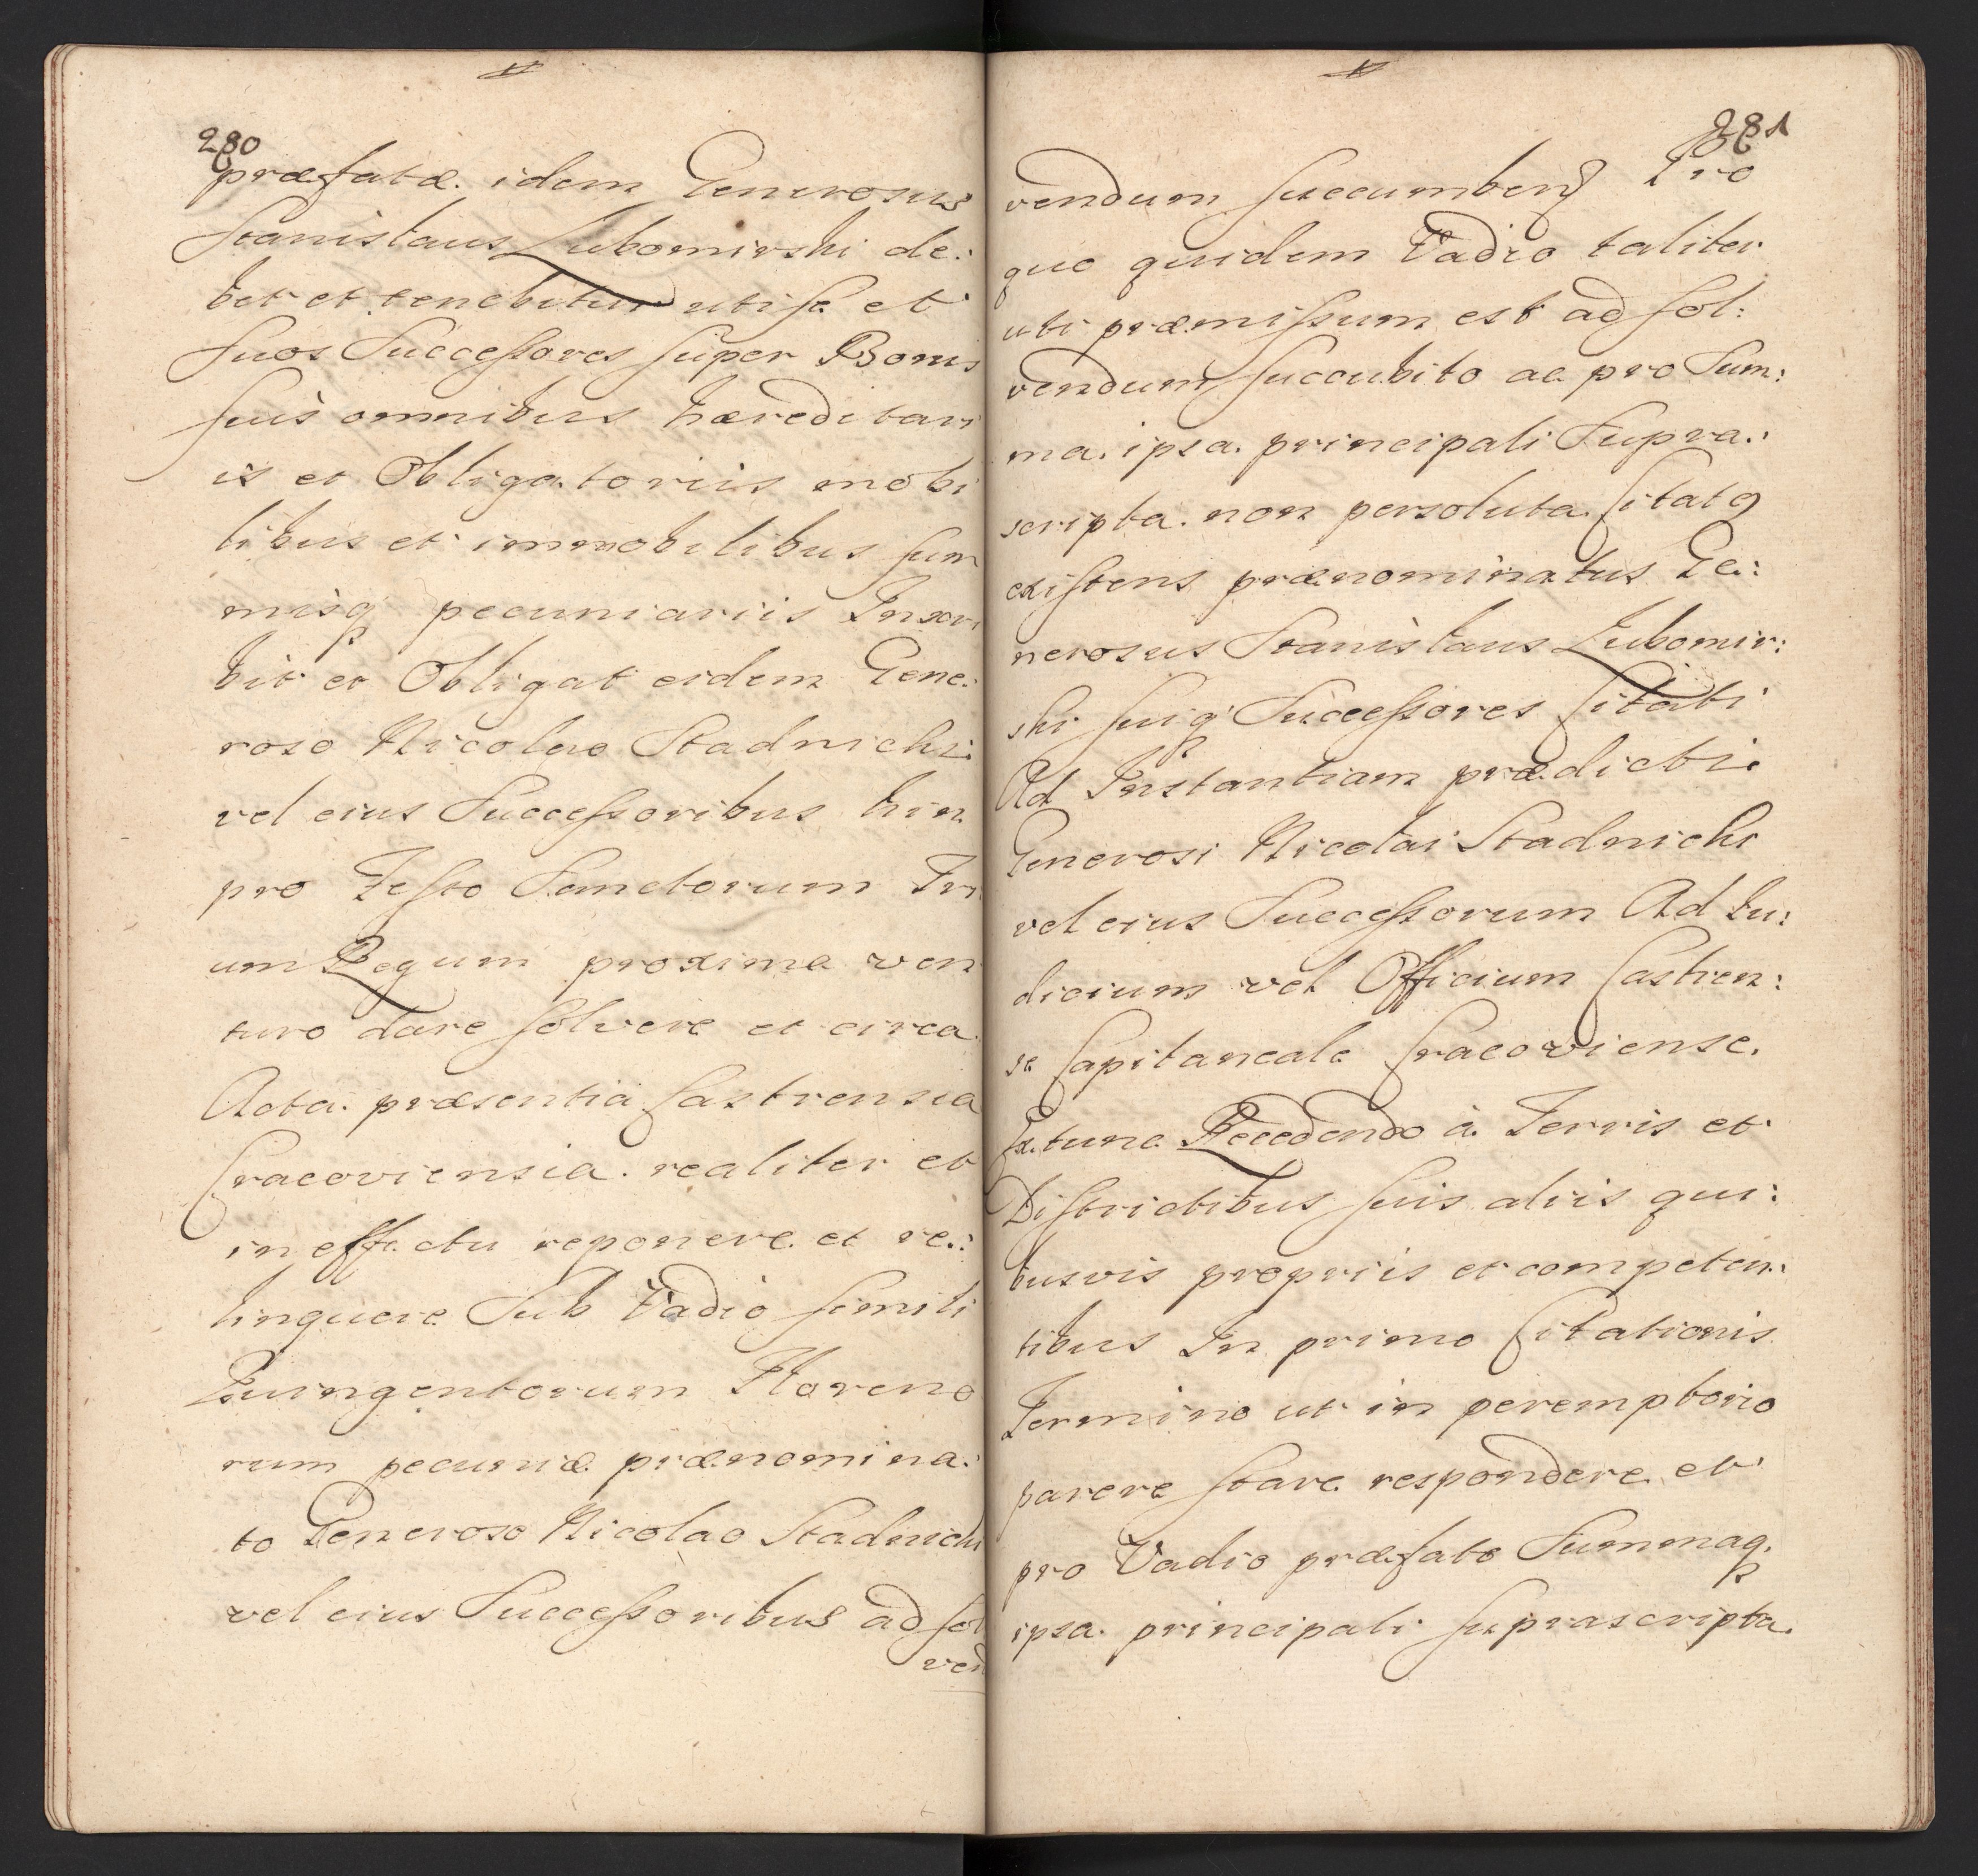 280
præfatæ idem Generosus
Stanislaus Lubomirski de:
bet et tenebitur uti se et
Suos Successores super Bonis
suis omnibus hæreditari
is et Obligatoriis mobi
libus et immobilibus sum
misq pecuniariis Inscri
bit et Obligat eidem Gene:
roso Nicolao Stadnicki
vel eius Successoribus hin
pro Festo Sanctorum Tri
um Regum proxime ven
turo dare solvere et circa
Acta præsentia Castrensia
Cracoviensia realiter et
in effectu reponere et re:
linquere Sub Vadio simili
Quingentorum Floreno
rum pecuniæ prænomina:
to Generoso Nicolao Stadnicki
vel eius Successoribus ad sol
ven
281
vendum succumben Pro
quo quidem Vadio taliter
uti præmissum est ad sol:
vendum succubito ac pro Sum:
ma ipsa principali Supra:
scripta non persoluta Citatq
existens prænominatus Ge:
nerosus Stanislaus Lubomir:
ski suiq Successores Citati
Ad Instantiam prædicti
Generosi Nicolai Stadnicki
vel eius Successorum Ad Iu:
dicium vel Officium Castren:
se Capitaneale Cracoviense
Extunc Recedendo à Terris et
Districtibus suis aliis qui:
busvis propriis et competen:
tibus In primo Citationis
Termino ut in peremptorio
parere stare respondere et
pro Vadio præfato Summaq
ipsa principali suprascripta